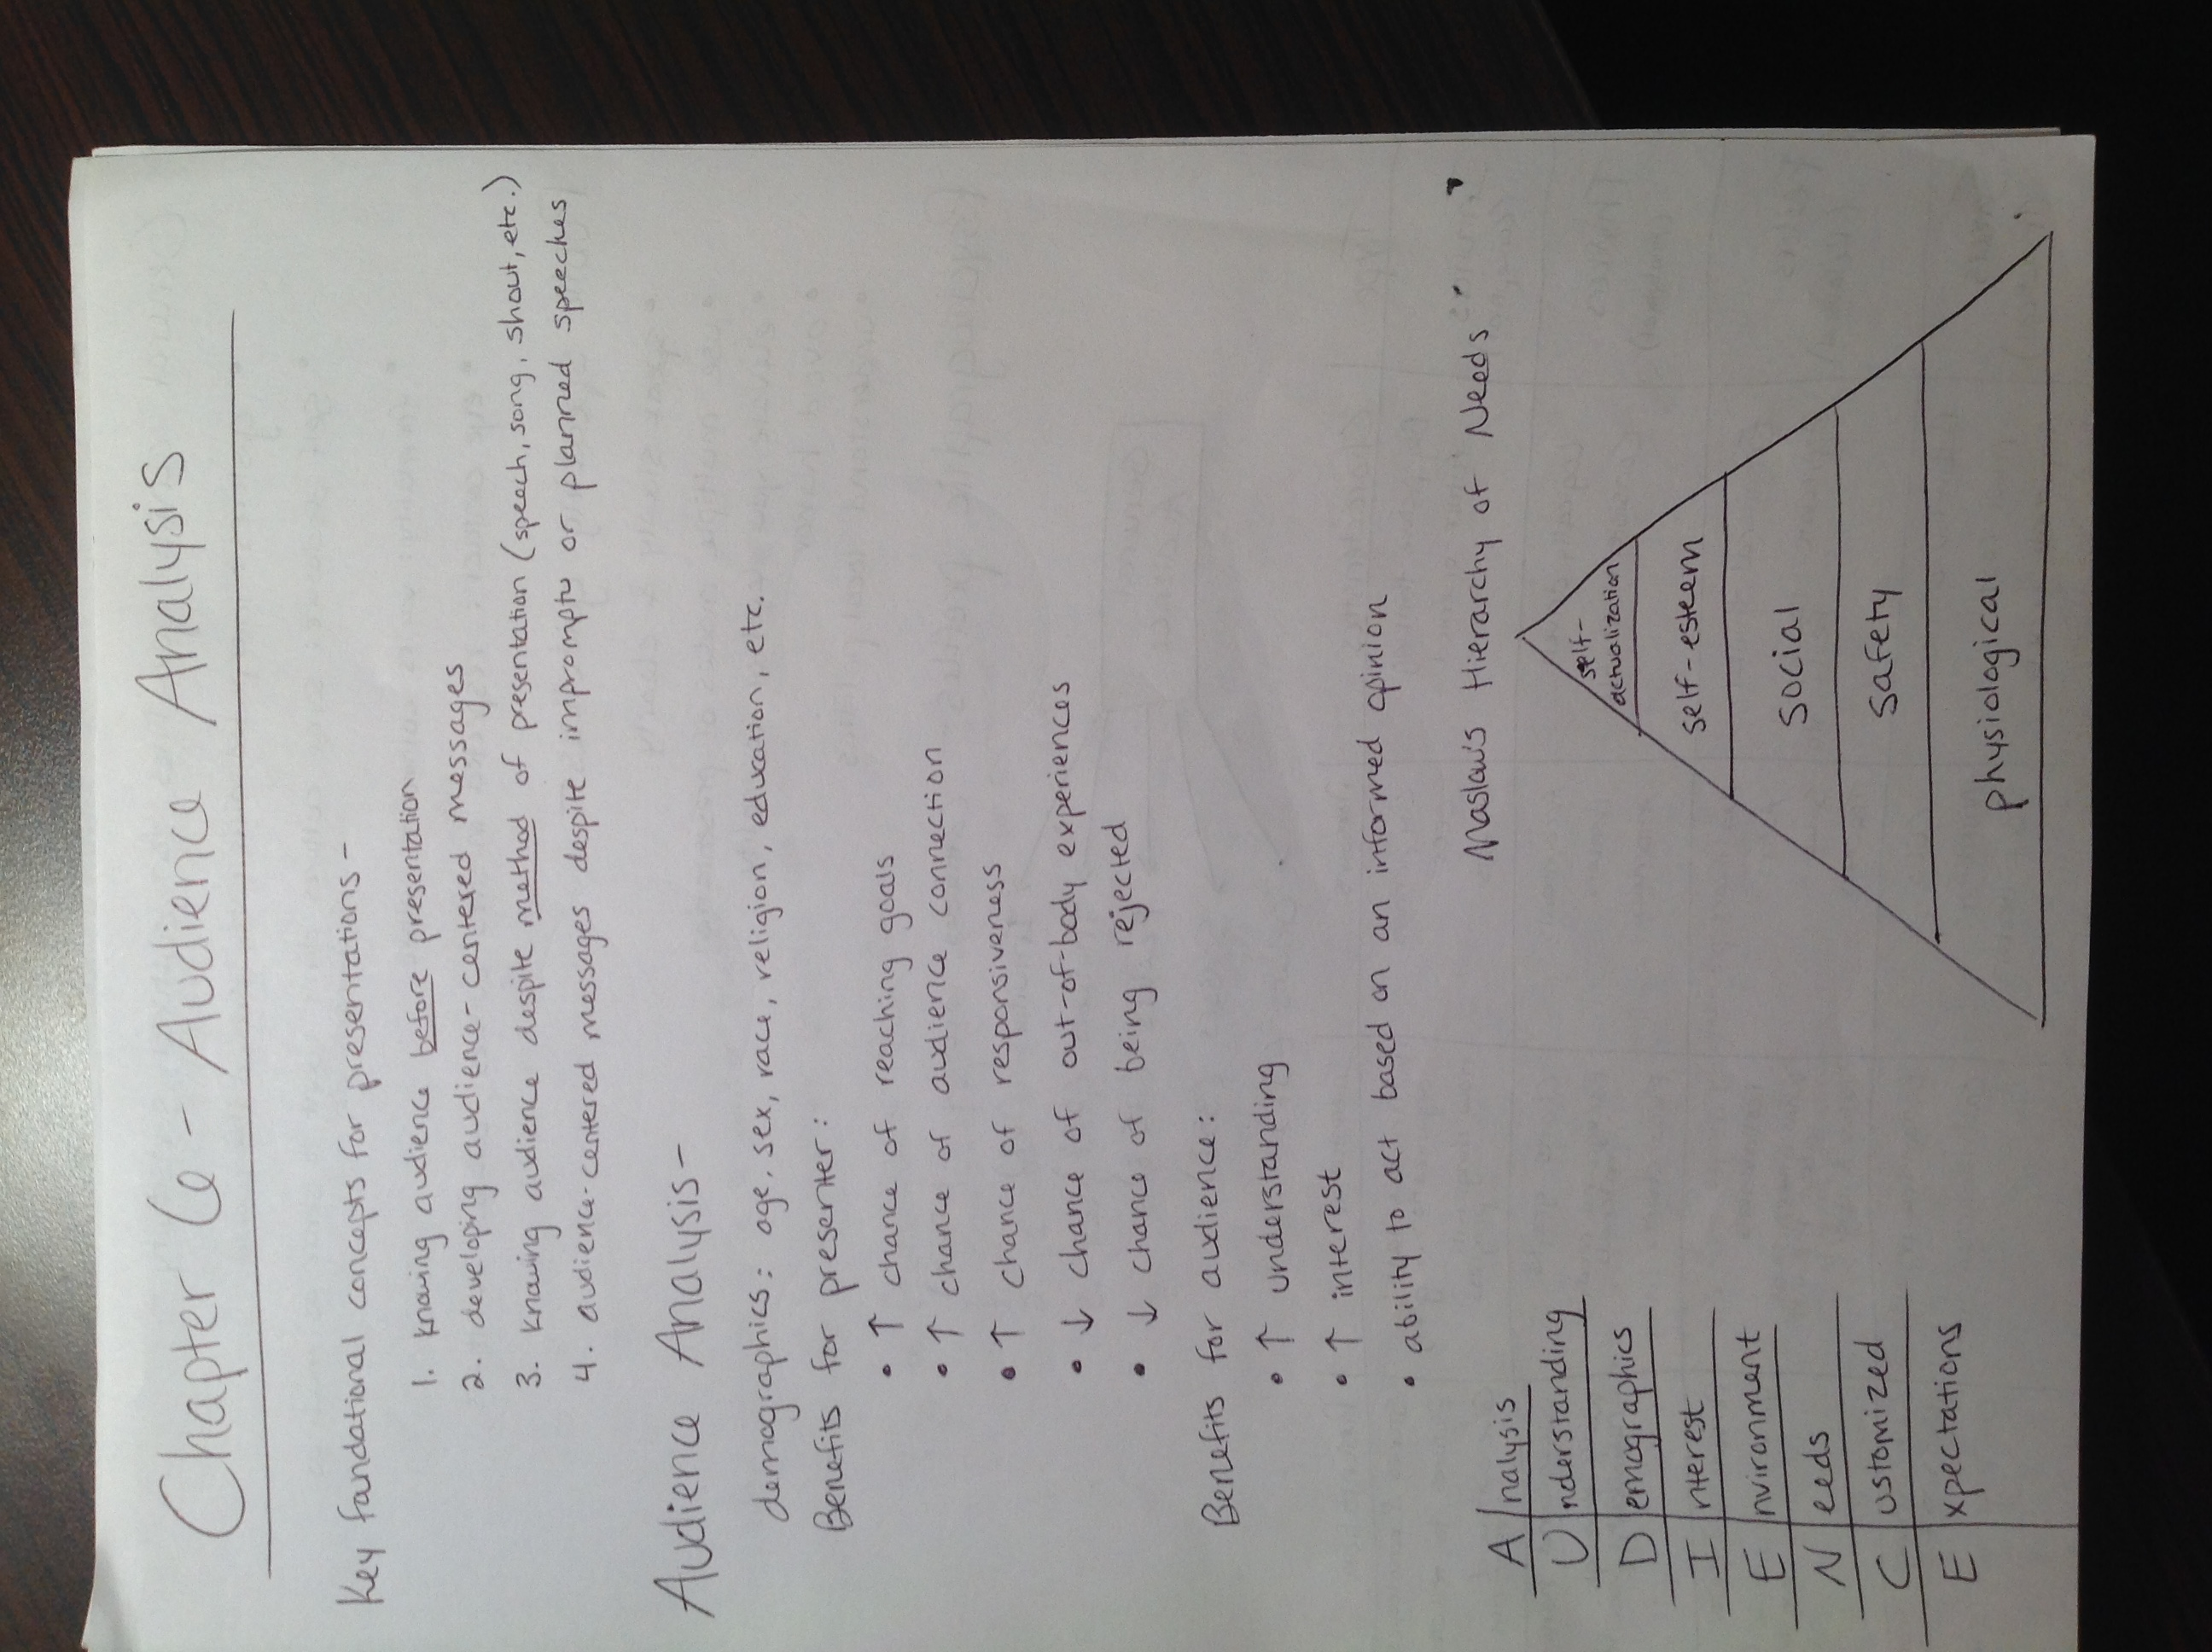 Chapter 6 - Audience Analysis
Key foundational concepts for presentations -
1. knowing audience before presentation
2. developing audience-centered messages
3. knowing audience despite method of presentation (speech, song, shout, etc.)
4. audience-centered messages despite impromptu or planned speeches
Audience Analysis -
demographics: age, sex, race, religion, education, etc.
Benefits for presenter:
• ↑ chance of reaching goals
• ↑ chance of audience connection
• ↑ chance of responsiveness
• ↓ chance of out-of-body experiences
• ↓ chance of being rejected
Benefits for audience:
• ↑ understanding
• ↑ interest
• ability to act based on an informed opinion
A nalysis
U nderstanding
D emographics
I nterest
E nvironment
N eeds
C ustomized
E xpectations
Maslow's Hierarchy of Needs
self-
actualization
self-esteem
social
safety
physiological